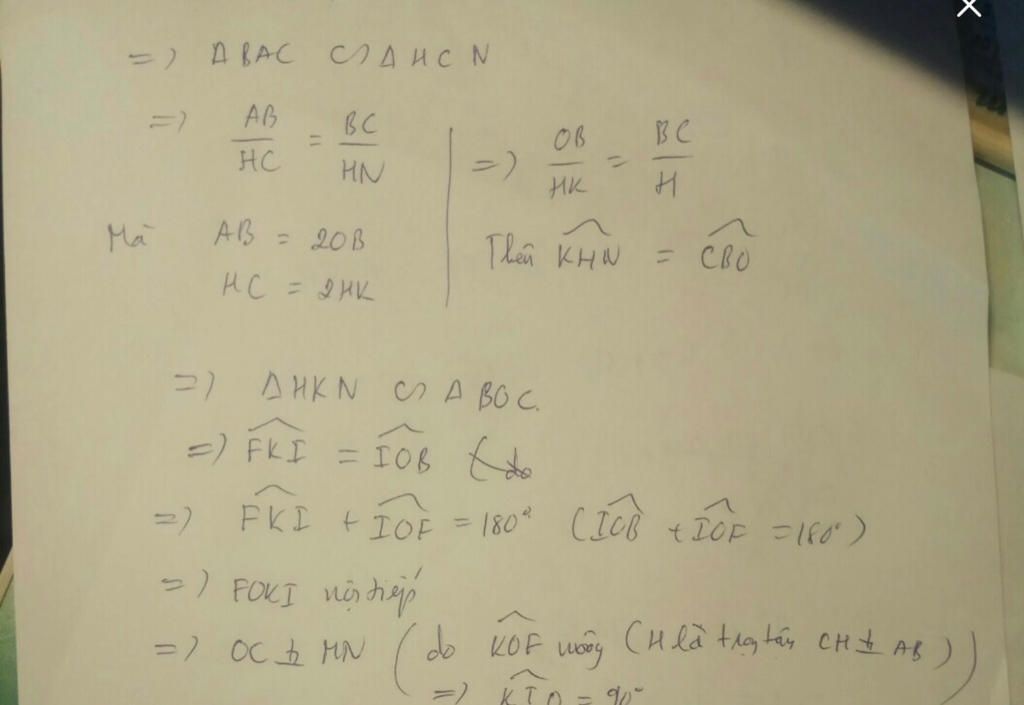 =) Δ BAC ∽ Δ HCN
=) AB/HC = BC/HN
Mà AB = 2OB
HC = 2HK
=) OB/HK = BC/H
Then \widehat{KHN} = \widehat{CBO}
=) Δ HKN ∽ Δ BOC.
=) \widehat{FKI} = \widehat{IOB} (do
=) \widehat{FKI} + \widehat{IOF} = 180° (\widehat{IOB} + \widehat{IOF} = 180°)
=) FOKI nội tiếp
=) OC ⊥ MN (do \widehat{KOF} vuông (H là trọng tâm CH ⊥ AB)
=) \widehat{KIO} = 90°)